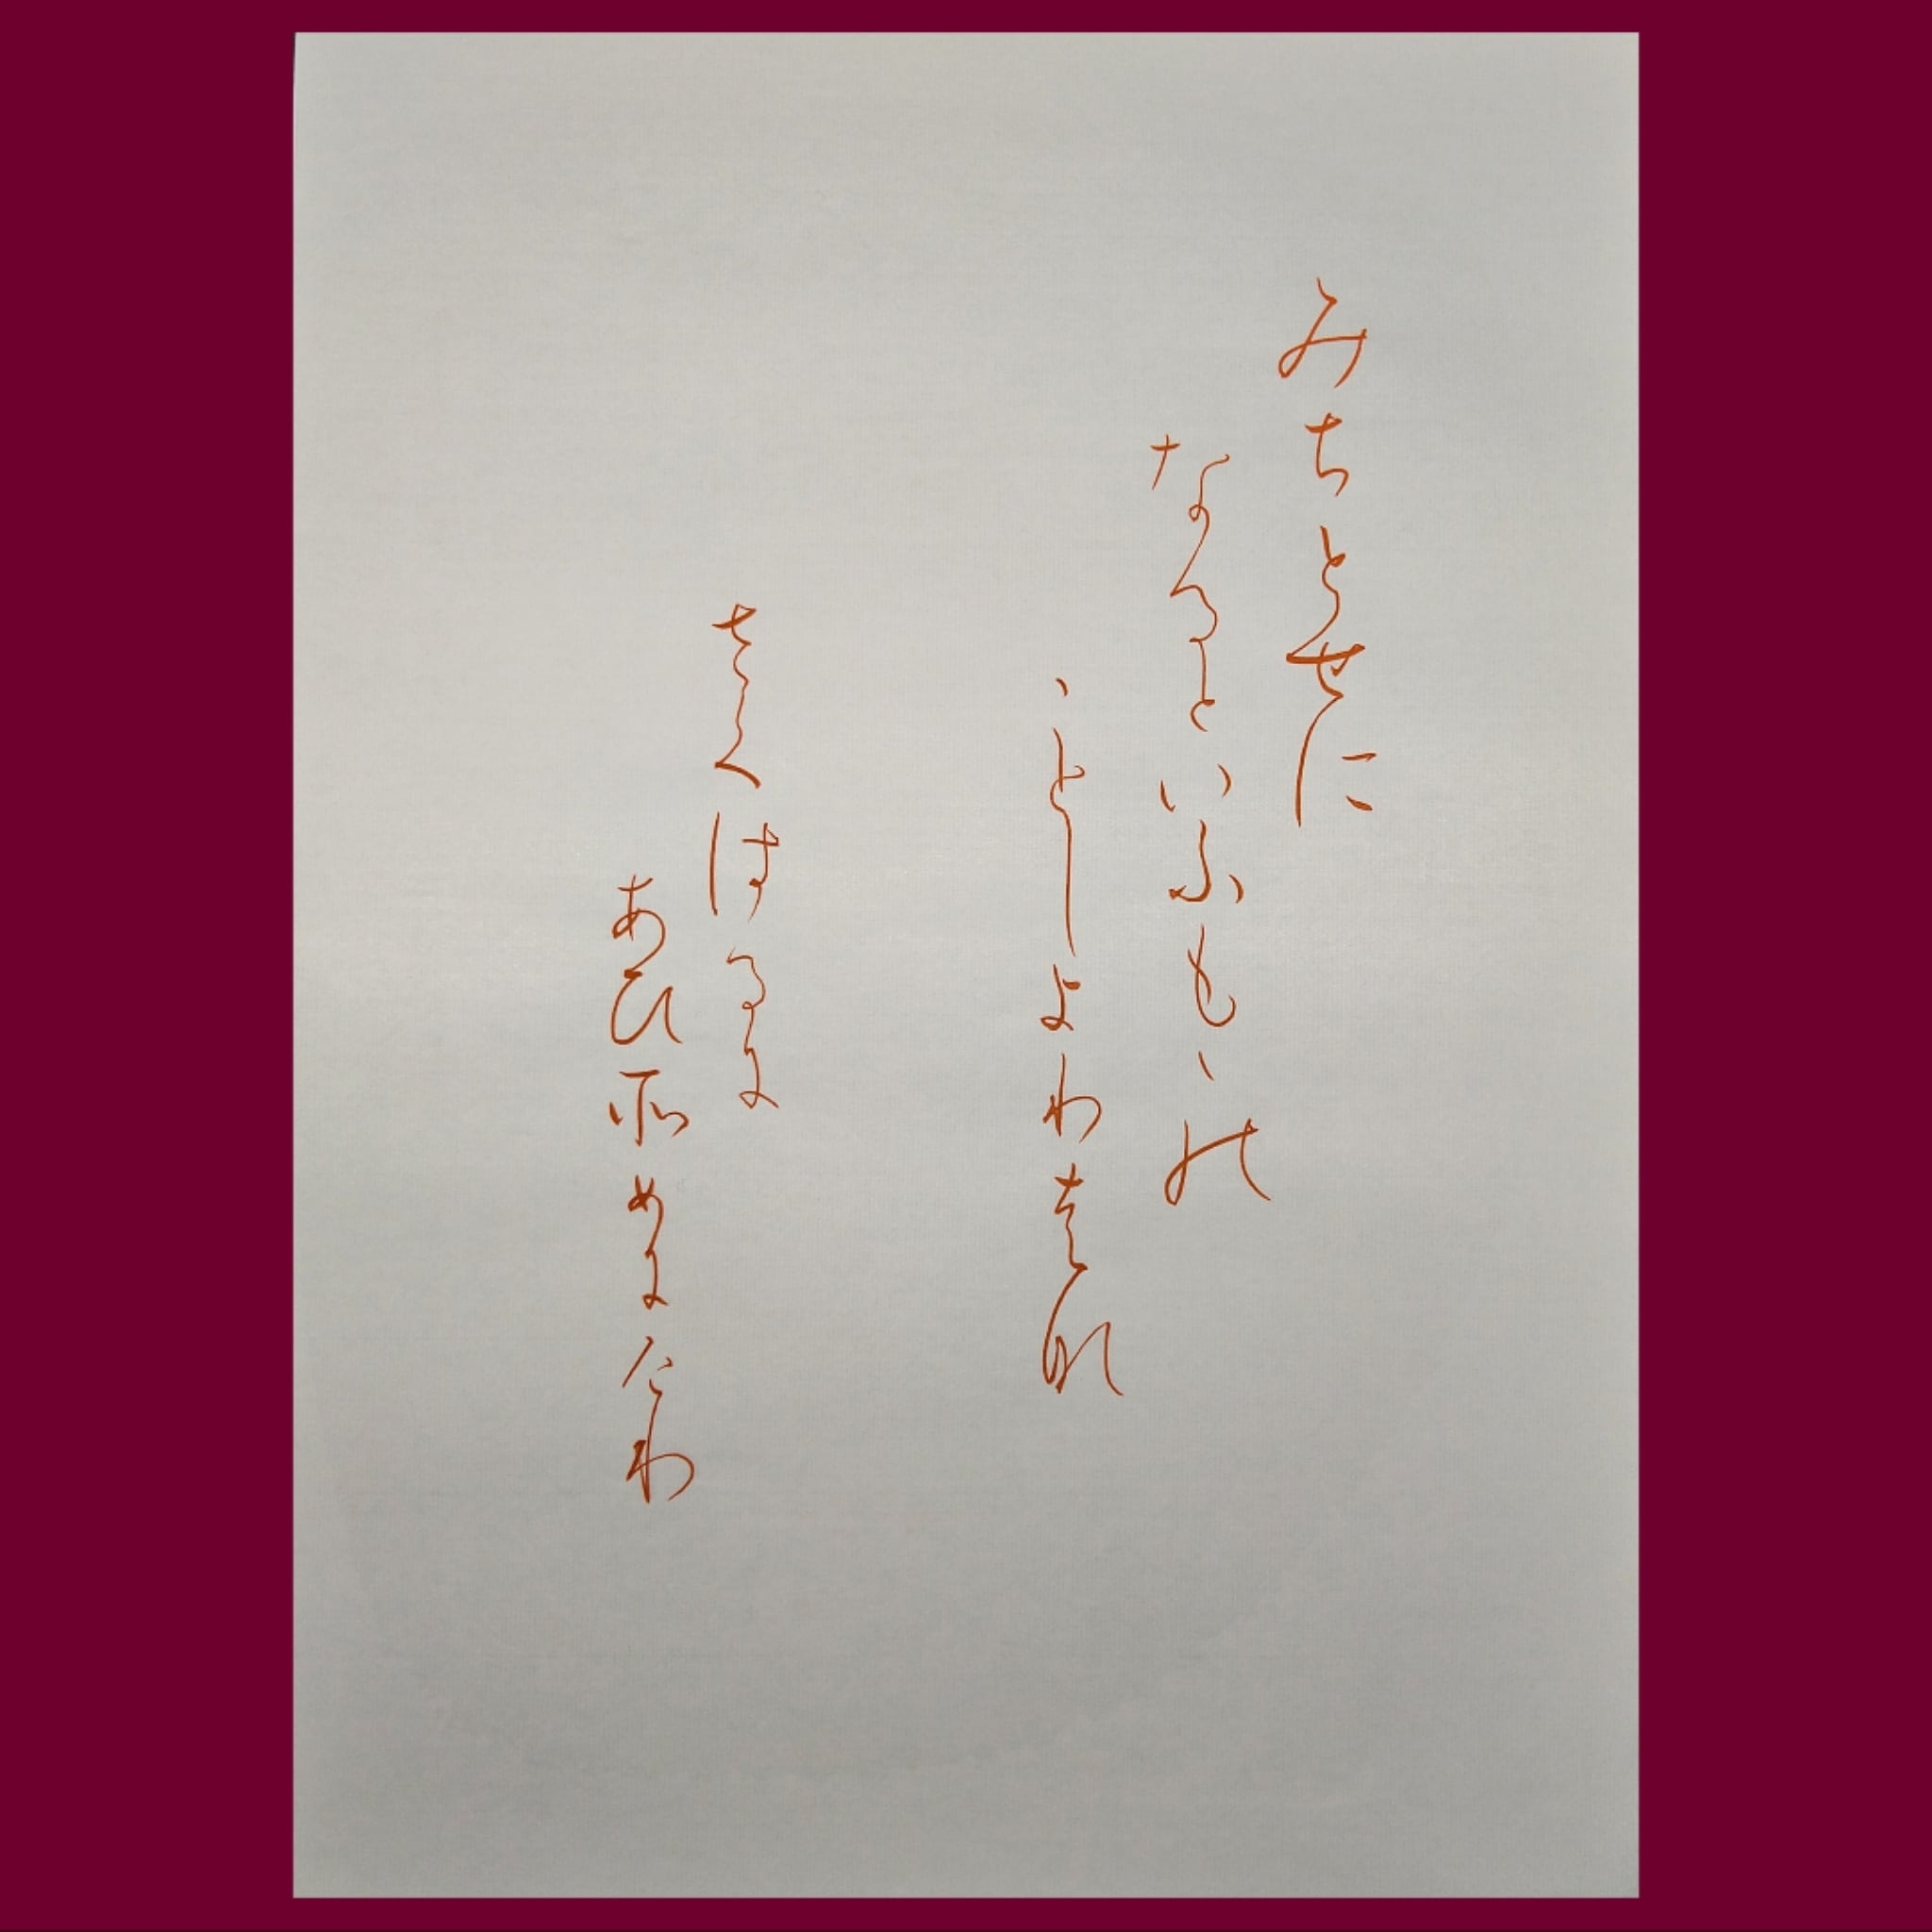 みちとせに
なるといふもゝの
ことしよりはな
さくはるに
あひそめにけり